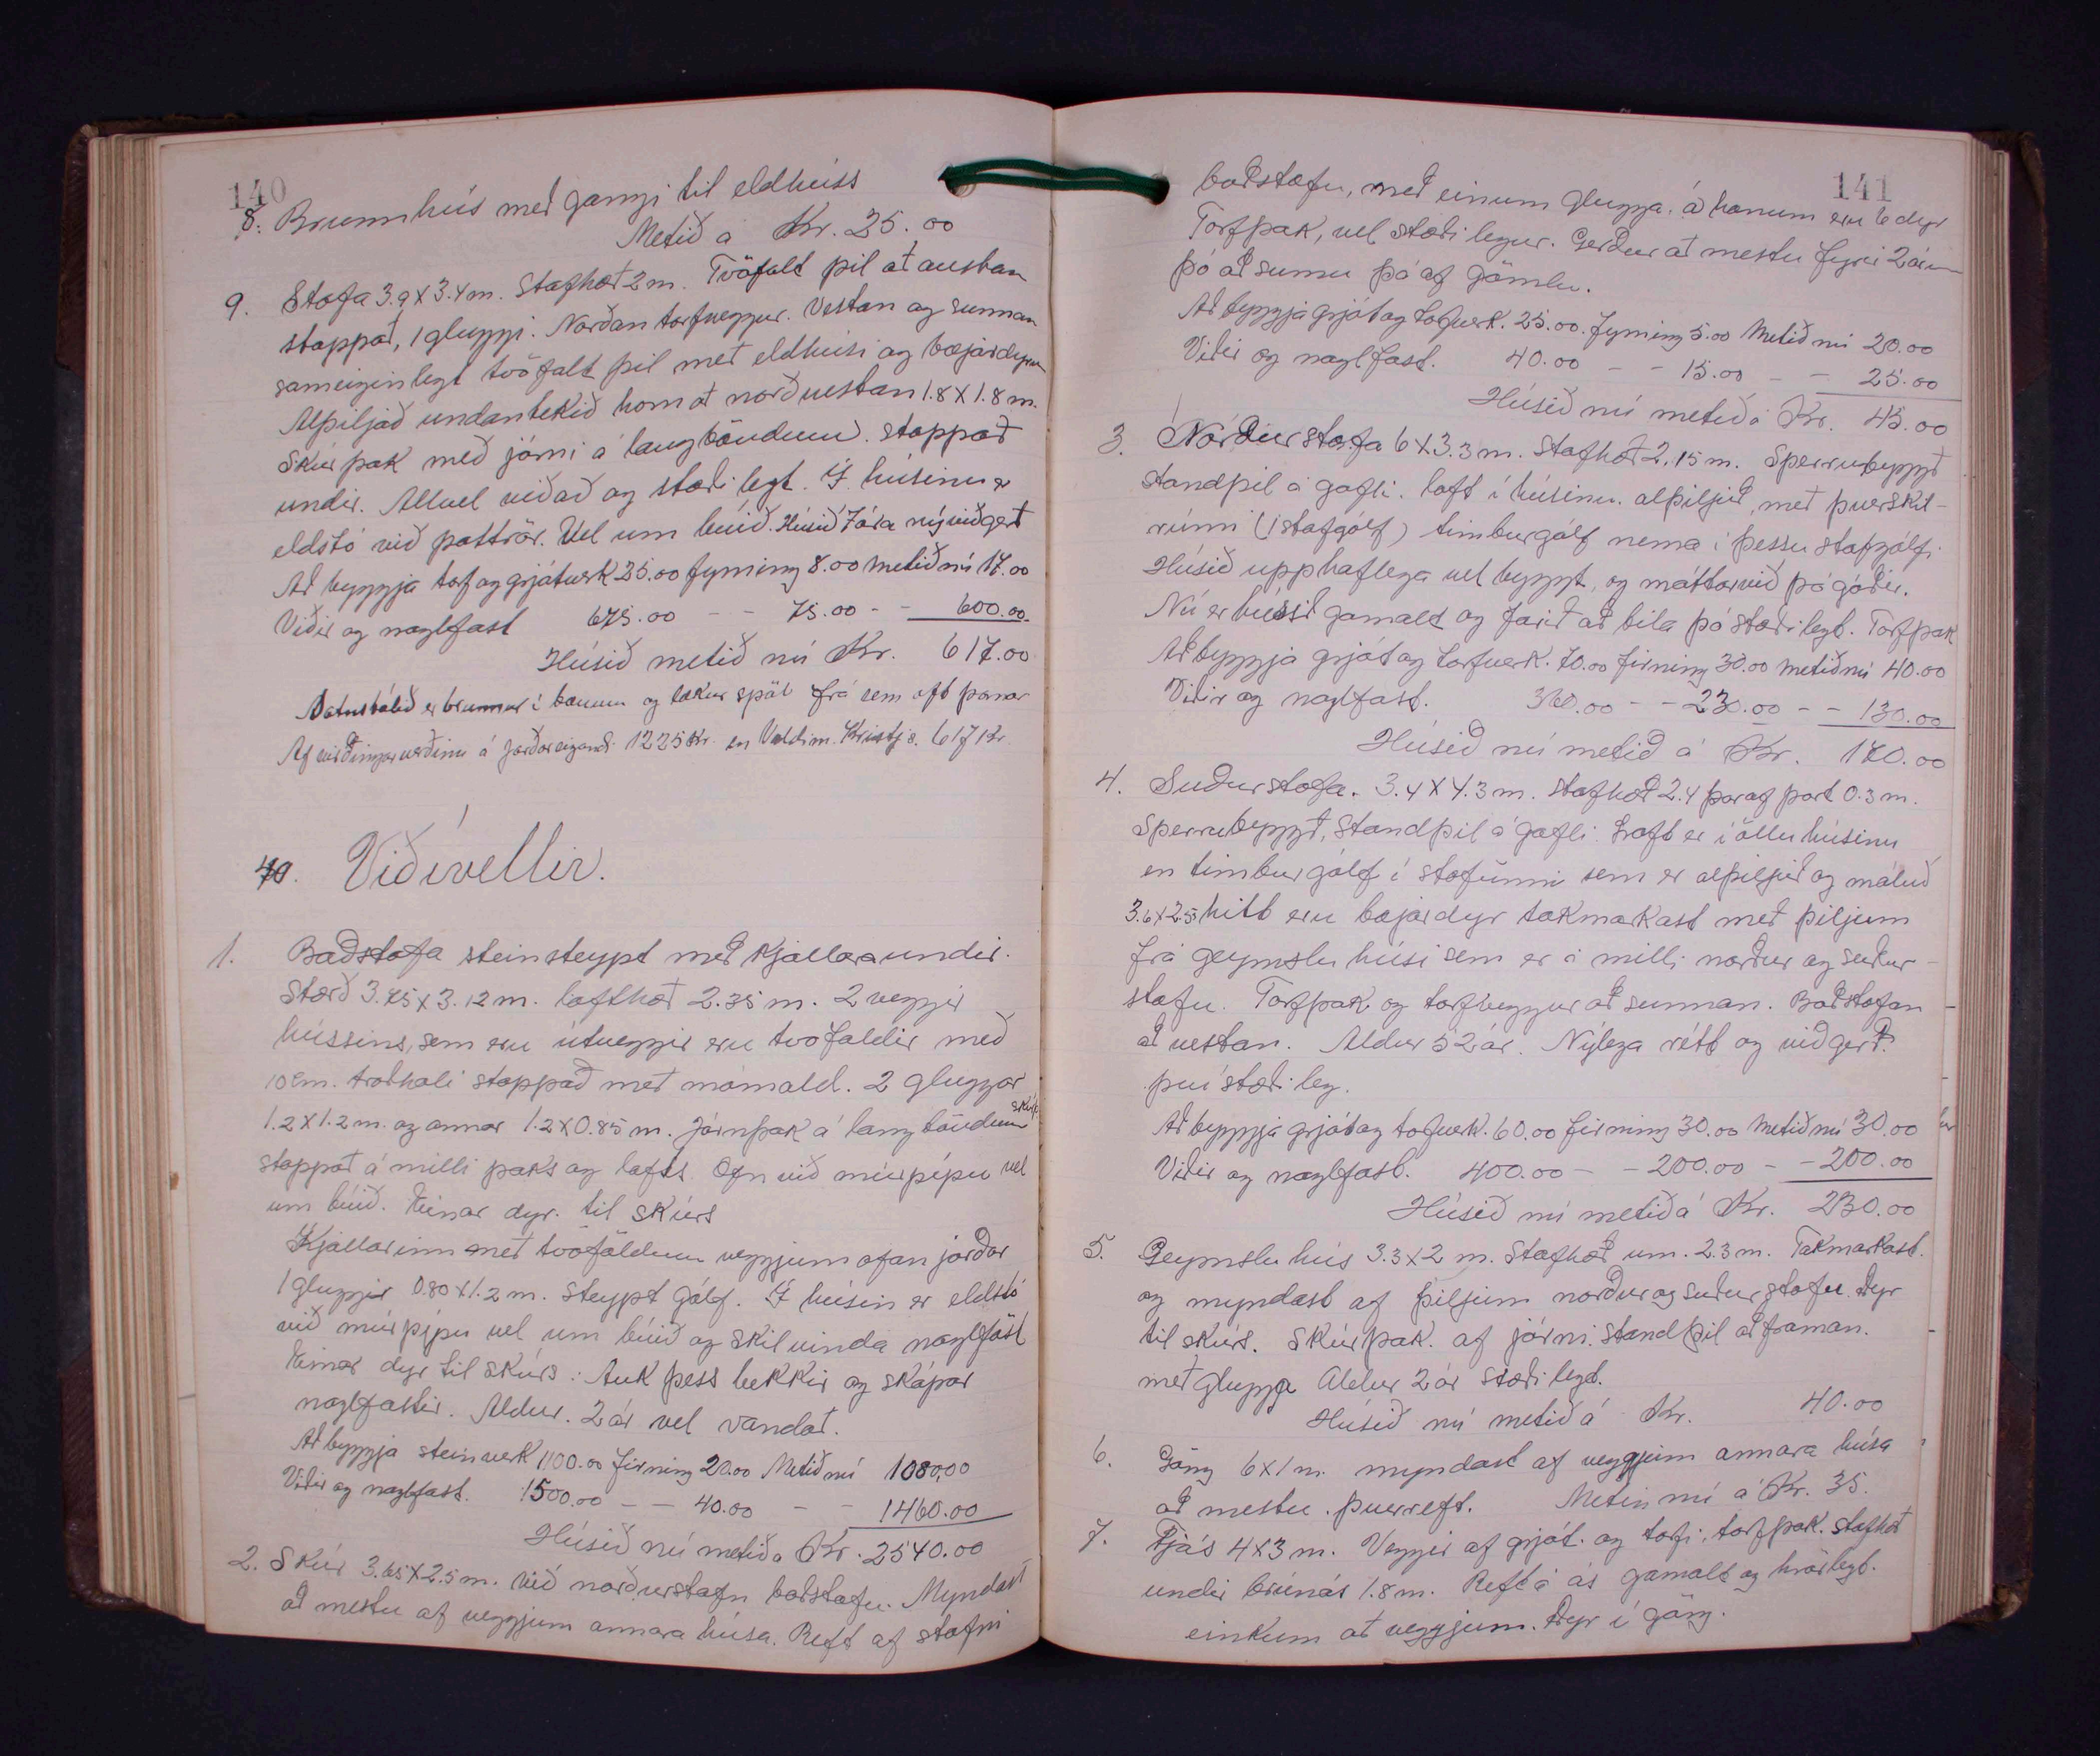 140
8. Brunnhús með gangi til eldhúss
Metið á Kr. 25.00
9. Stofa 3.9 x 3.4 m. Stafhæð 2 m. Tvöfalt þil að austan
stoppað, 1 gluggi. Norðan torfveggur. Vestan og sunnan
sameiginlegt tvöfalt þil með eldhúsi og bæjardyrum
Alþiljað undantekið horn að norðvestan 1.8 x 1.8 m.
Skúrþak með járni á langböndum. stoppað
undir. Allvel viðað og stæðilegt. Í húsinu er
eldstó við pottrör. Vel um búið. Húsið 7 ára nýviðgert
Að byggja torf og grjótverk 25.00 fyrning 8.00 metið nú 17.00
Viðir og naglfast 675.00 - - 75.00 - - 600.00
Húsið metið nú Kr. 617.00
Vatnsbólið er brunnur í bænum og lækur spöl frá sem oft þornar
Af virðingarverðinu á jarðareigandi 1225 Kr. en Valdim. Kristjs. 617 Kr.
40. Víðivellir.
1. Baðstofa steinsteypt með kjallara undir.
Stærð 3.75 x 3.12 m. lofthæð 2.35 m. 2 veggir
hússins, sem eru útveggir eru tvöfaldir með
10 cm. troðholi stoppað með mómold. 2 gluggar
1.2 x 1.2 m. og annar 1.2 x 0.85 m. Járnþak á langböndum
stoppað á milli þaks og lofts. Ofn við múrpípu vel
um búið. Einar dyr. til skúrs
Kjallarinn með tvöföldum veggjum ofan jarðar
1 gluggi 0.80 x 1.2 m. Steypt gólf. Í húsin er eldstó
við múrpípu vel um búið og skilvinda naglföst
Einar dyr til skúrs: Auk þess bekkir og skápar
naglfastir. Aldur. 2 ár vel vandað.
Að byggja steinverk 1100.00 firning 20.00 Metið nú 1080.00
Viðir og naglfast. 1500.00 - - 40.00 - - 1460.00
Húsið nú metið á Kr. 2540.00
2. Skúr 3.65 x 2.5 m. við norðurstafn baðstofu. Myndast
að mestu af veggjum annara húsa. Reft af stafni
141
baðstofu, með einum glugga, á honum eru 6 dyr
Torfþak, vel stæðilegur. Gerður að mestu fyrir 2 árum
þó að sumu þá af gömlu.
Að byggja grjót og torfverk. 25.00. fyrning 5.00 Metið nú 20.00
Viðir og naglfast. 40.00 - - 15.00 - - 25.00
Húsið nú metið á Kr. 45.00
3. Norðurstofa 6 x 3.3 m. Stafhæð 2.15 m. Sperrubyggð
Standþil á gafli. loft í húsinu. alþiljuð, með þverskil-
rúmi (1 stafgólf) timburgólf nema í þessu stafgólfi
Húsið upphaflega vel byggt, og máttarvið þá góðir.
Nú er húsið gamalt og farið að bila þó stæðilegt. Torfþak
Að byggja grjót og torfverk. 70.00 firning 30.00 metið nú 40.00
Viðir og naglfast. 360.00 - - 230.00 - - 130.00
Húsið nú metið á Kr. 170.00
4. Suðurstofa. 3.4 x 4.3 m. Stafhæð 2.4 þaraf port 0.3 m.
Sperrubyggð, Standþil á gafli. Loft er í öllu húsinu
en timburgólf í stofunni sem er alþiljuð og máluð
3.6 x 2.5 hitt eru bæjardyr takmarkast með þiljum
frá geymsluhúsi sem er á milli norður og suður-
stofu. Torfþak og torfveggur að sunnan. Baðstofan
að vestan. Aldur 52 ár. Nýlega rétt og viðgerð.
því stæðileg.
Að byggja grjót og torfverk. 60.00 firning 30.00 Metið nú 30.00
Viðir og naglfast. 400.00 - - 200.00 - - 200.00
Húsið nú metið á Kr. 230.00
5. Geymsluhús 3.3 x 2 m. Stafhæð um. 2.3 m. Takmarkast.
og myndast af þiljum norður og suðurstofu. Dyr
til skúrs. Skúrþak. af járni. Standþil að framan.
með glugga Aldur 2 ár stæðilegt.
Húsið nú metið á Kr. 40.00
6. Göng 6 x 1 m. myndast af veggjum annara húsa
að mestu. þverreft. Metin nú á Kr. 35.
7. Fjós 4 x 3 m. Veggir af grjót. og torfi. torfþak. Stafhæð
undir brúnás 1.8 m. Reft á ás gamalt og hrörlegt.
einkum að veggjum. Dyr í göng.